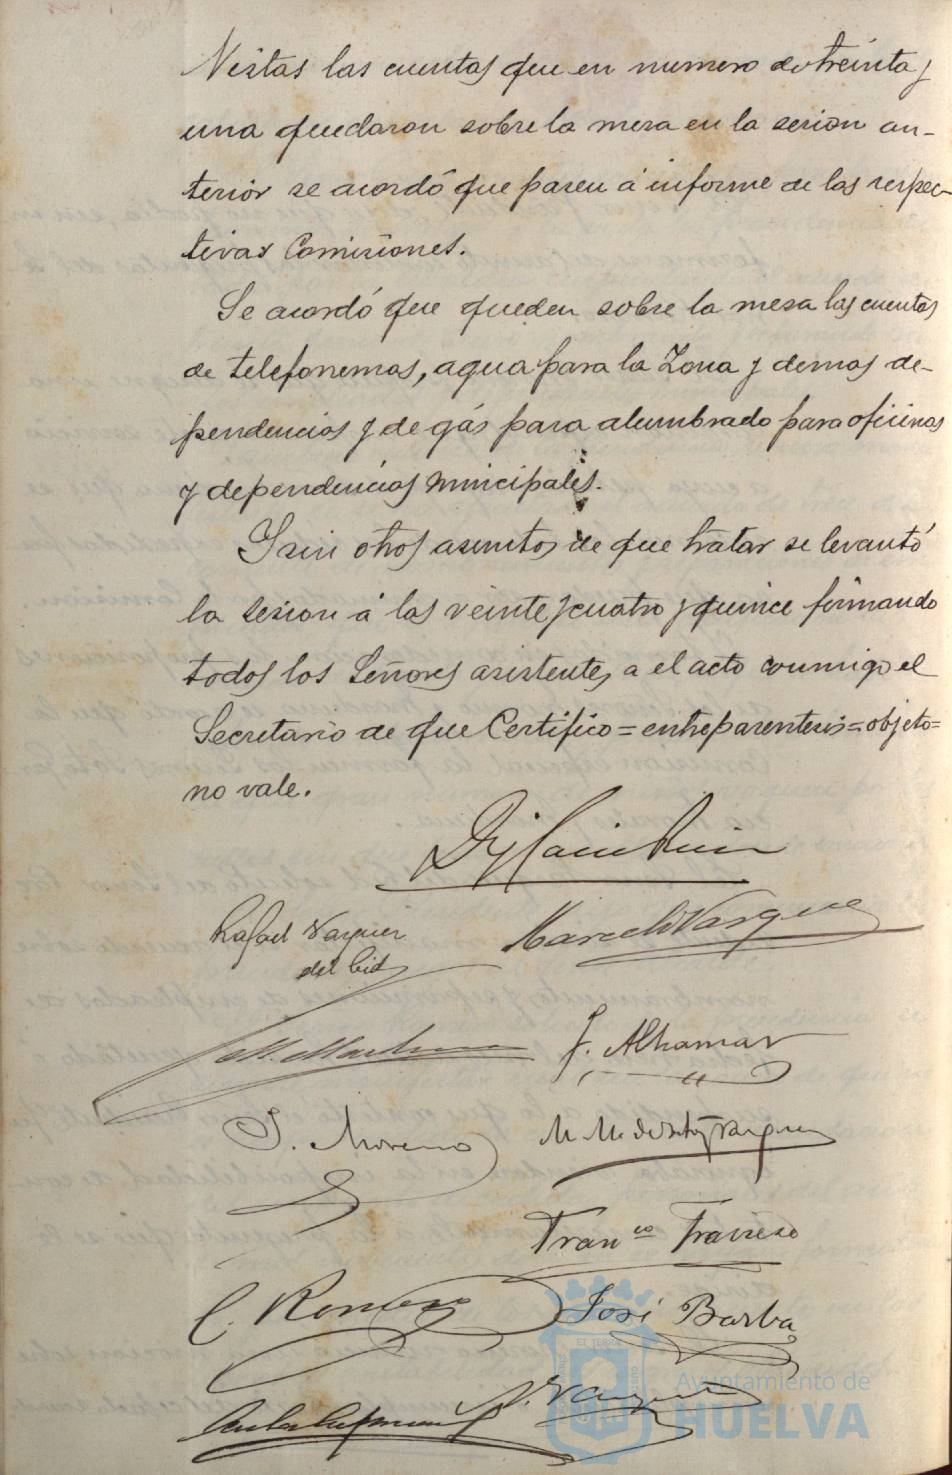 Vistas las cuentas que en numero de treinta y
una quedaron sobre la mesa en la sesion an-
terior se acordó que pasen á informe de las respec-
tivas Comisiones.
Se acordó que queden sobre la mesa las cuentas
de telefonemas, agua para la Zona y demas de-
pendencias y de gás para alumbrado para oficinas
y dependencias municipales.
Y sin otros asuntos de que tratar se levantó
la sesion á las veinte y cuatro y quince firmando
todos los Señores asistentes a el acto conmigo el
Secretario de que Certifico = entreparentesis = objeto =
no vale.
Rafael Vazquez
del Cid
Marcel Vazquez
M. Martin
J. Alhamar
J. Moreno
M. M. de Soto y Vazquez
Fran.co Travieso
C. Romero
José Barba
J. Vazquez
Ayuntamiento de
HUELVA